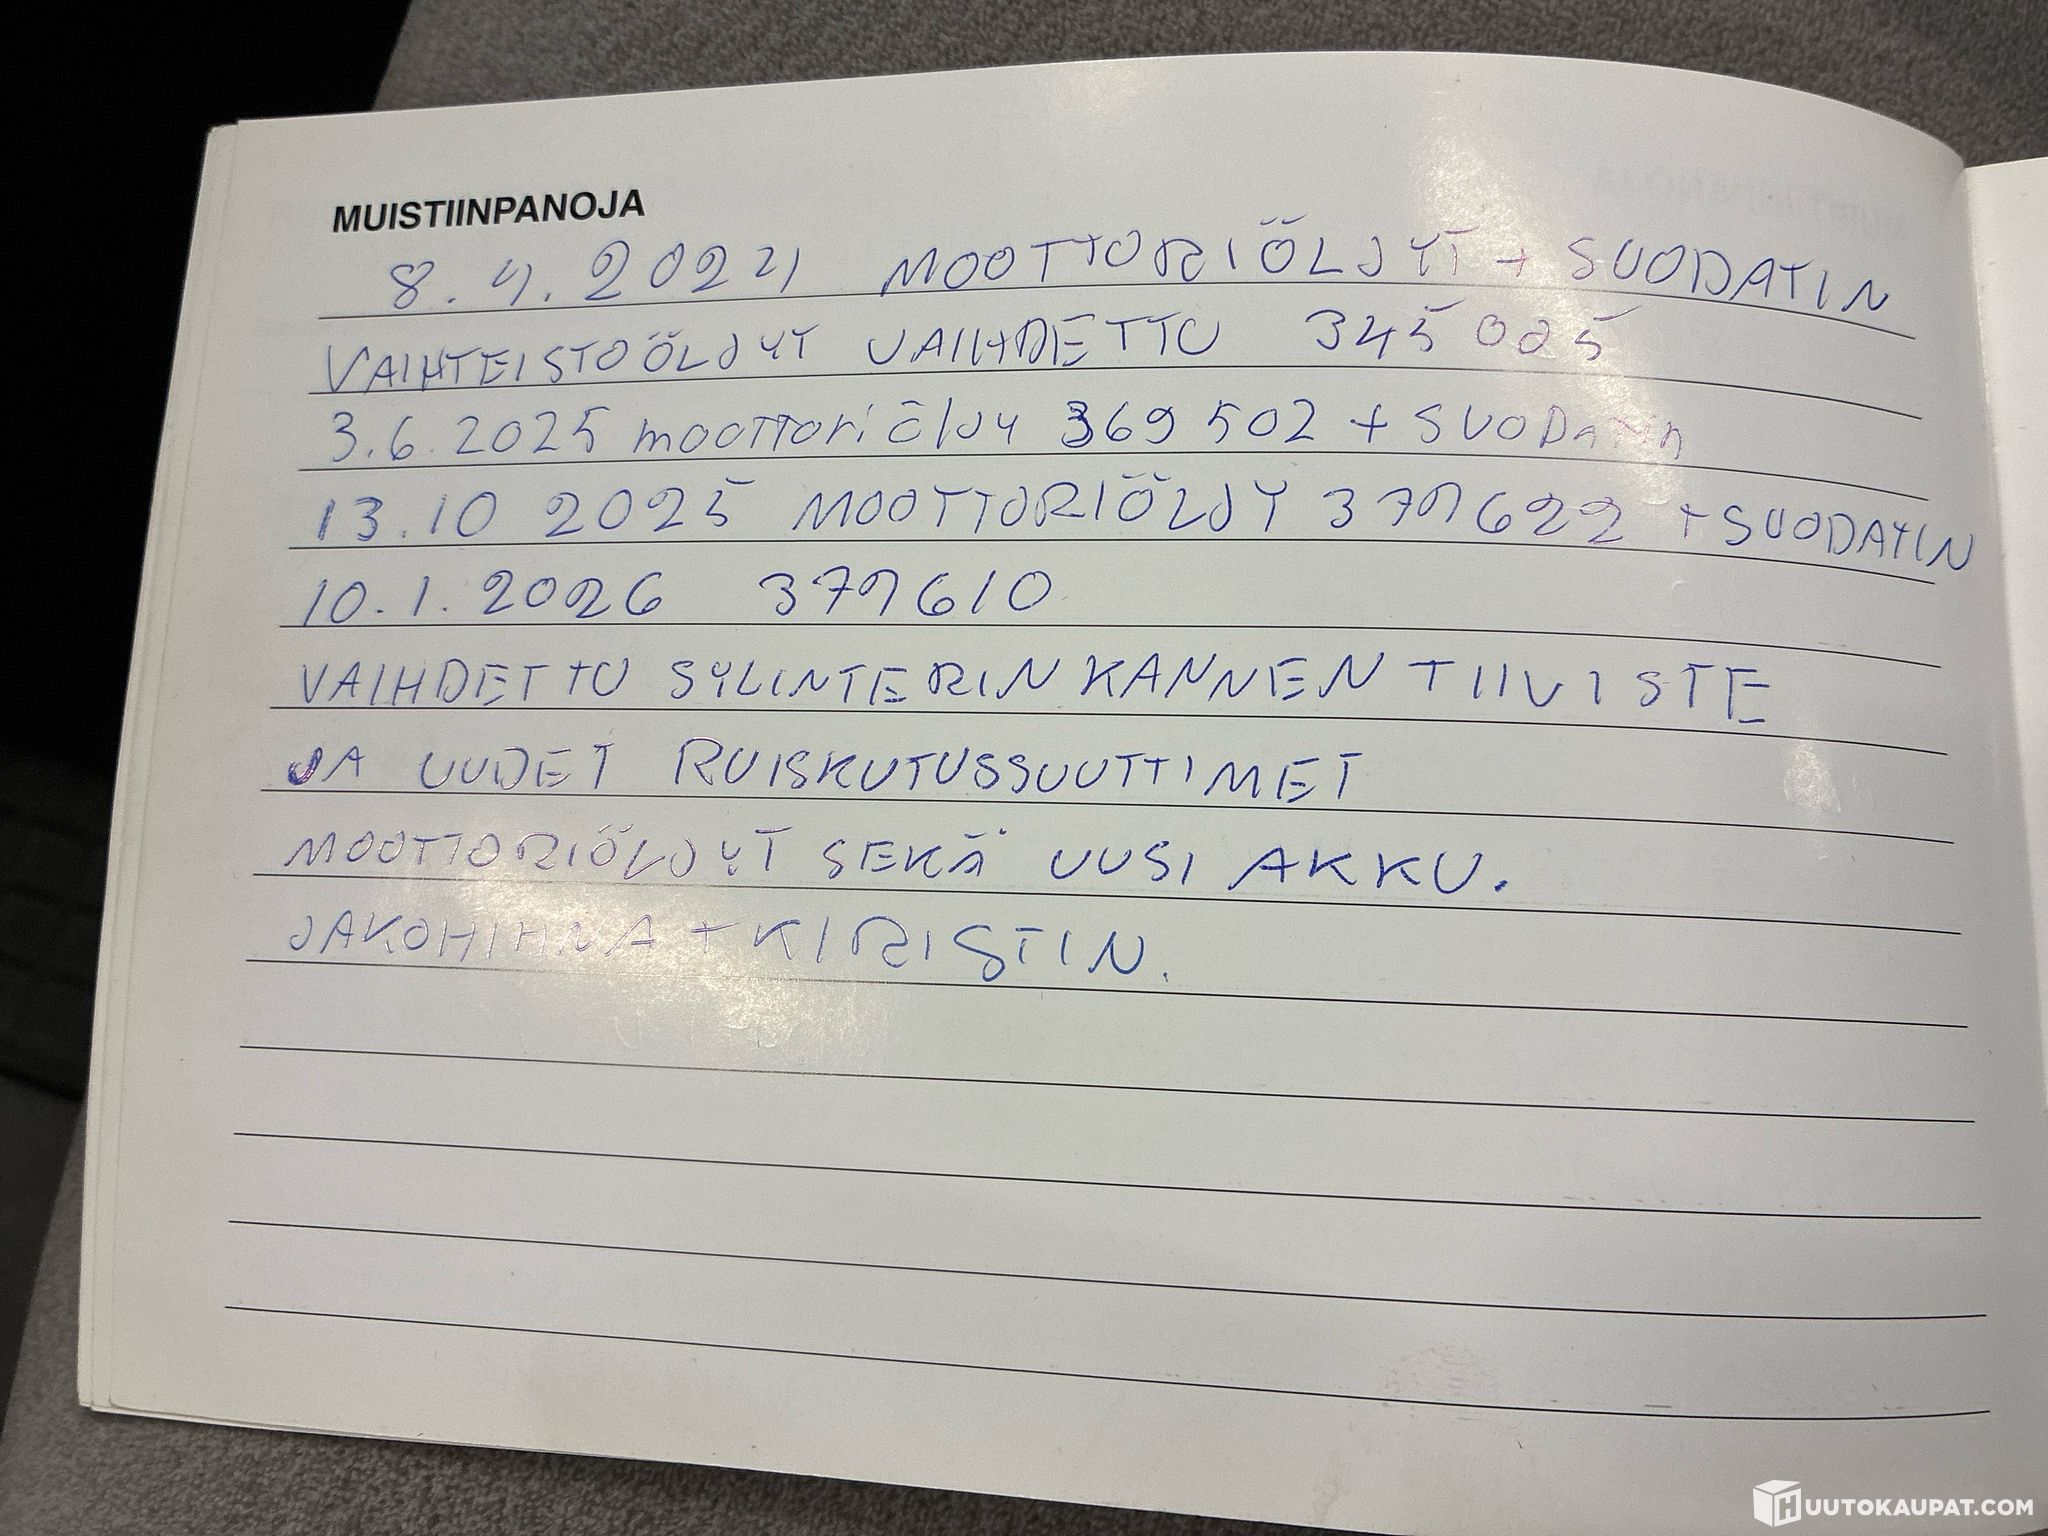 MUISTIINPANOJA
8.4.2024 MOOTTORIÖLJYT + SUODATIN
VAIHTEISTOÖLJYT VAIHDETTU 345 005
3.6.2025 moottoriöljy 369 502 + SUODATIN
13.10 2025 MOOTTORIÖLJY 379622 + SUODATIN
10.1.2026 379610
VAIHDETTU SYLINTERIN KANNEN TIIVISTE
JA UUDET RUISKUTUSSUUTTIMET
MOOTTORIÖLJYT SEKÄ UUSI AKKU.
JAKOHIHNA + KIRISTIN.
HUUTOKAUPAT.COM